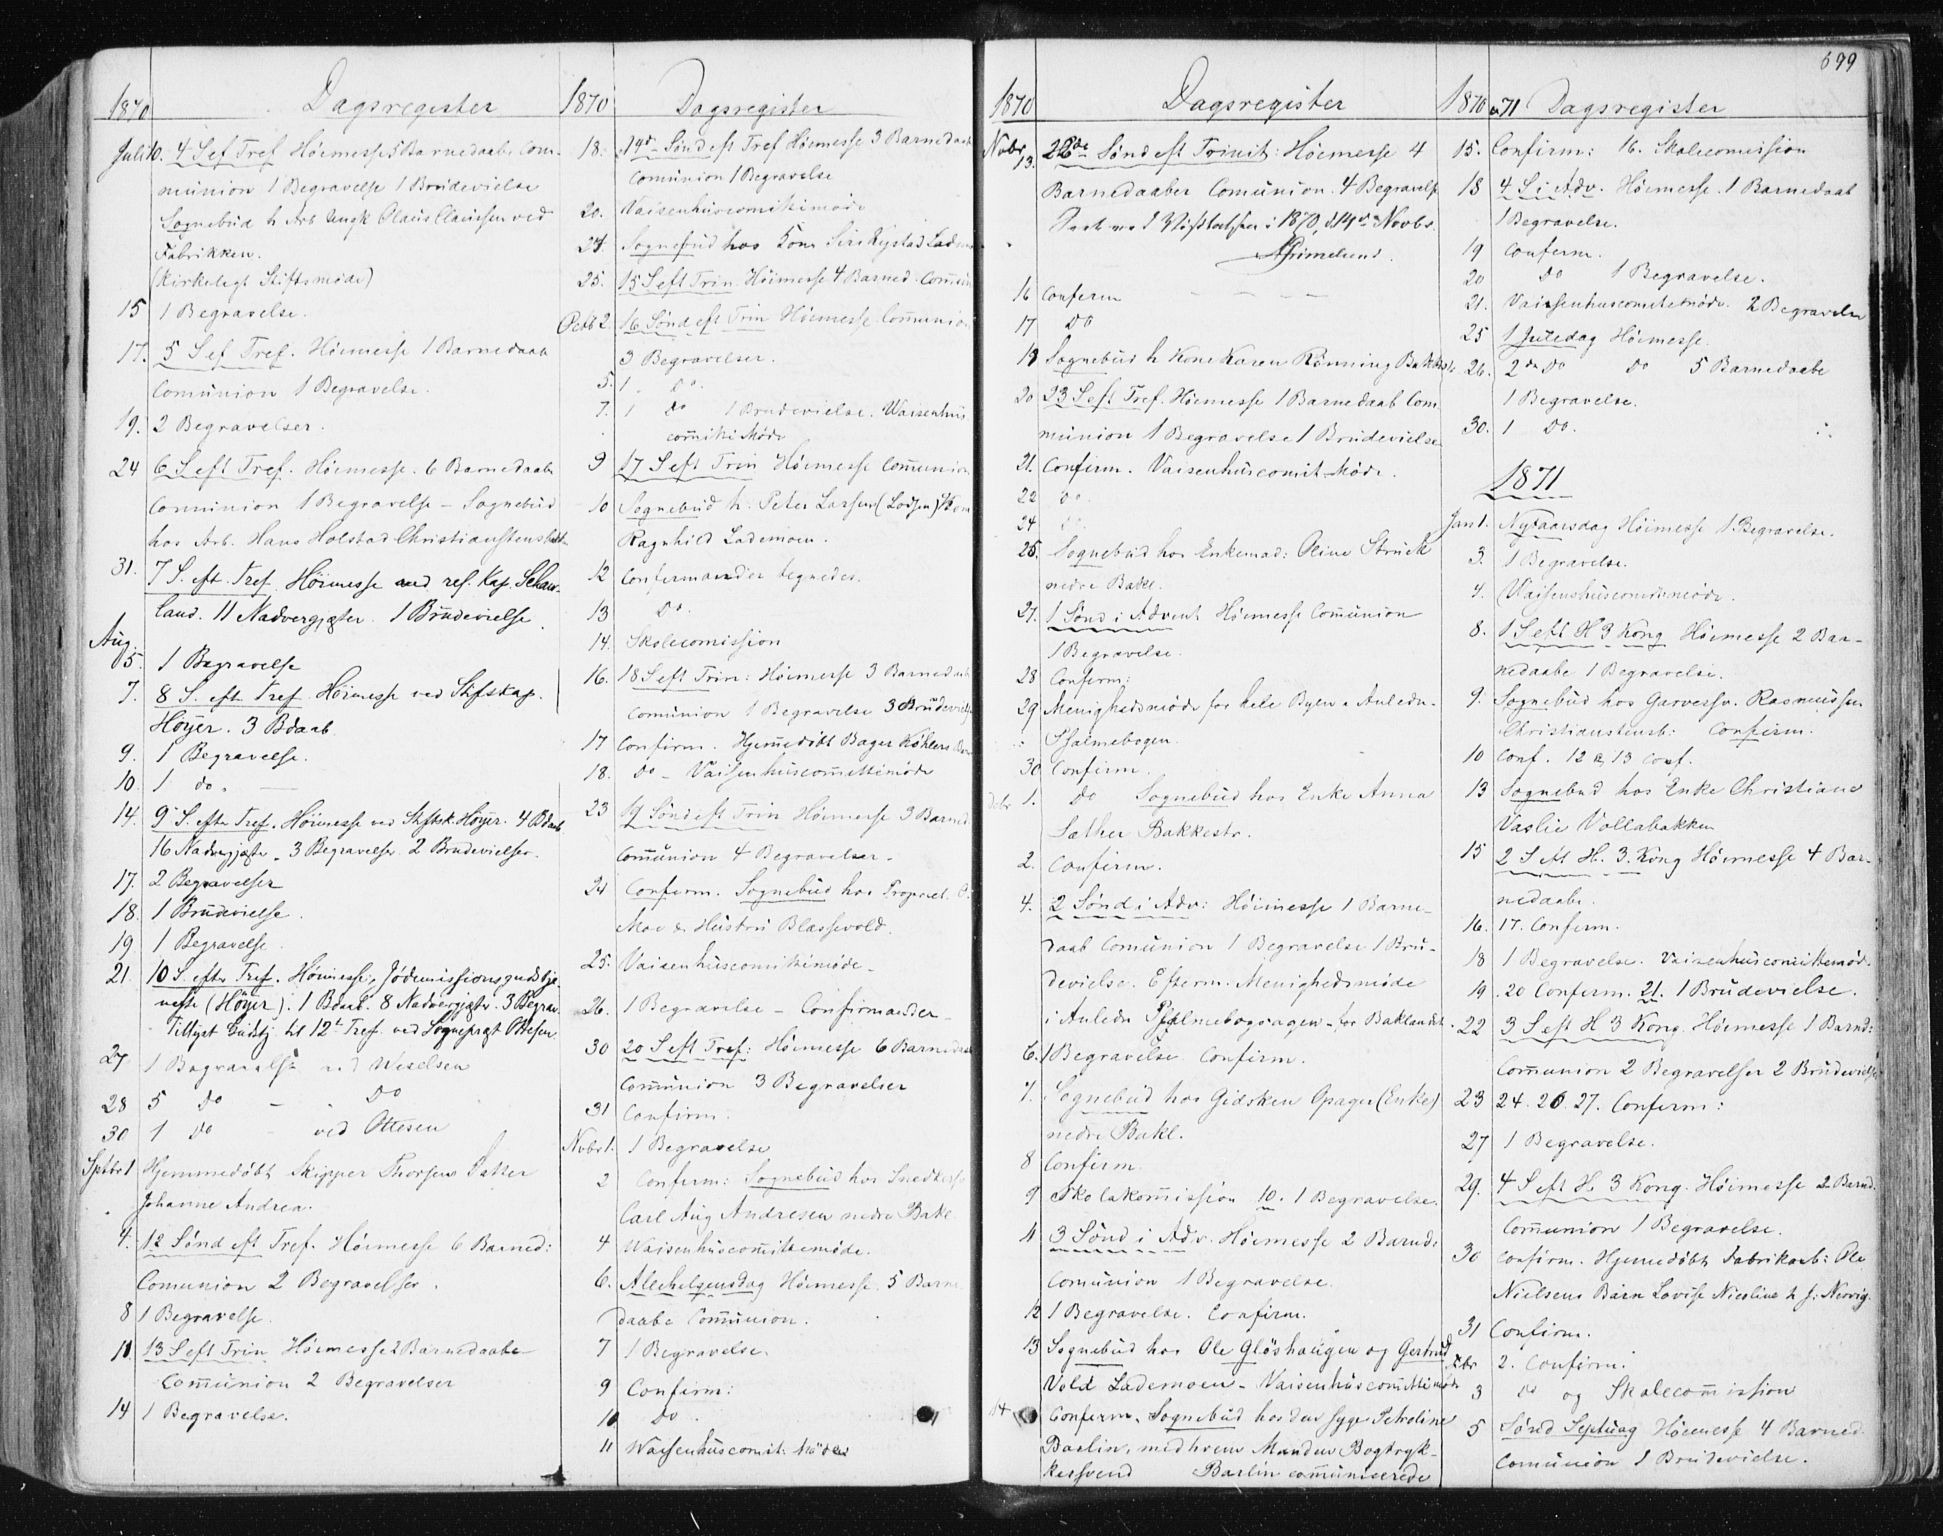 699
1870 Dagsregister
Juli 10. 4 S ef Tref Höiemesse 5 Barnedaabe Com-
munion 1 Begravelse 1 Brudevielse
Sognebud h Arb Claus Claussen ved
Fabrikken.
(Kirkeligt Stiftsmöde)
15 1 Begravelse.
17. 5 S ef Tref. Höiemesse 1 Barnedaab
Comunion 1 Begravelse.
19. 2 Begravelser.
24 6 S eft Tref. Höiemesse. 6 Barnedaabe
Comunion 1 Begravelse - Sognebud
hos Arb. Hans Holstad Christianstensbak
31. 7 S. eft. Tref. Höimesse ved res. Kap. Schau-
land. 11 Nadvergjæster. 1 Brudevielse.
Aug.
5. 1 Begravelse
7. 8 S. eft Tref Höimesse ved Stiftskap.
Hoyer. 3 Bdaab
9. 1 Begravelse.
10. 1 do.
14. 9 S. efter Tref. Höimesse ved Stiftsk. Höyer. 4 Bdaab
16 Nadvergjæster. 3 Begravelser 2 Brudevielser.
17. 2 Begravelser
18. 1 Brudevielse.
19 1 Begravelse.
21. 10 S. efter Tref. Höimesse, Jödemissionsgudstje-
neste (Höyer). 1 Bdaab. 8 Nadvergjæster. 3 Begrav.
Tillyst Gudstj til 12t Tref ved Sognepræst Ottesen
27 1 Begravelse ved Weselsen
28 5 do - Do
30 1 do - ved Ottesen
Septbr 1 Hjemmedöbt Skipper Thorsens Datter
Johanne Andrea.
4. 12 Sönd eft Tref. Höiemesse 6 Barned:
Comunion 2 Begravelser.
8 1 Begravelse.
11. 13 S eft Trin Höiemesse 2 Barnedaabe
Comunion 2 Begravelser
14 1 Begravelse.
1870 Dagsregister
18. 14de Sönd eft Tref Höiemesse 3 Barnedaab
Comunion 1 Begravelse
20. Vaisenhuscomitemöde
24. Sognebud hos Kone Siri Rystad Ladem
25. 15 S eft Trin Höiemesse 4 Barned. Comun
Octb 2. 16 Sönd eft Trin Höiemesse Comunion
3 Begravelser.
5. 1 Do.
7. 1 Do 1 Brudevielse. Waisenhus
comite Möde
9 17 S eft Trin Höiemesse Comunion
10 Sognebud h. Peter Larsen (Lodsen)
Ragnhild Lademoen.
12 Confirmander tegnedes.
13 Do.
14. Skolecomission
16. 18 S eft Trin: Höiemesse 3 Barnedaab
Comunion 1 Begravelse 3 Brudeviels
17 Confirm. Hjemedöbt Bager Köhlers
18. Do - Vaisenhuscomittemöde
23 19 Sönd eft Trin Höiemesse 3 Barned
Comunion 4 Begravelser.
24 Confirm. Sognebud hos Propriet.
Moe & Hustru Blassevold.
25. Vaisenhuscomitemöde.
26. 1 Begravelse - Confirmander
30 20 S eft Tref: Höiemesse 6 Barnedaab
Comunion 3 Begravelser
31 Confirm.
Novbr 1. 1 Begravelse
2 Confirm: Sognebud hos Snedkersv
Carl Aug Andresen nedre Bakl.
4 Waisenhuscomittemöde.
6. Allehelgensdag Höiemesse. 5 Barne
daabe Comunion.
7 1 Begravelse.
9 Confirm:
10 Do.
11 Waisenhuscomit: Möde
1870 Dagsregister
Novbr 13. 22de Sönd eft Trinit: Höiemesse 4
Barnedaaber Comunion. 4 Begravels
i 1870, d 14de Novbr.
Grimelund.
16 Conferm
17 Do
19 Sognebud h Kone Karen Rönning Bakkestr.
20 23 S eft Tref. Höiemesse 1 Barnedaab Com
munion 1 Begravelse 1 Brudevielse
21. Confirm. Vaisenhuscomit. Möde.
22 Do.
24
25. Sognebud hos Enkemad: Oline Struck
nedre Bakl.
27. 1 Sönd i Advent Höiemesse Comunion
1 Begravelse.
28 Confirm:
29 Menighedsmöde for hele Byen i Anledn.
Psalmebogen.
30 Confirm.
Debr 1. Do Sognebud hos Enke Anna
Sæther Bakkestr.
2. Confirm.
4. 2 Sönd i Adv: Höiemesse 1 Barne-
daab Comunion 1 Begravelse 1 Bru-
devielse. Efterm. Menighedsmöde
i Anledn Psalmebogsagen - for Baklandet.
6. 1 Begravelse Confirm.
7. Sognebud hos Gidsken Opager (Enke)
nedre Bakl.
8 Confirm.
9 Skolekomission 10. 1 Begravelse.
11 3 Sönd i Adv. Höiemesse 2 Barnd:
Comunion 1 Begravelse.
12 1 Begravelse. Confirm.
13 Sognebud hos Ole Glöshaugen og Gertrud
Vold Lademoen - Vaisenhuscomittemöde
14 Confirm. Sognebud hos den syge Petroline
Baslin, med hvem Manden Bogtryk-
kersvend Baslin communiserede
1870 & 71 Dagsregister
15. Confirm: 16. Skolecomission
18 4 S i Adv. Höiemesse. 1 Barnedaab
1 Begravelse.
19 Confirm.
20 Do 1 Begravelse.
21. Vaisenhuscomitemöde. 2 Begravelse
25 1 Juledag Höiemesse.
26. 2den Do Do 5 Barnedaabe
1 Begravelse.
30. 1 Do.
1871
Jan 1. Nytaarsdag Höiemesse 1 Begravelse.
3. 1 Begravelse.
4. Vaisenhuscomitemöde.
8. 1 S eft H 3 Kong Höiemesse 2 Bar-
nedaabe 1 Begravelse.
9. Sognebud hos Garversv. Rasmussen
Christianstensb: Confirm.
10 Conf. 12 & 13 Conf.
13 Sognebud hos Enke Christiane
Vaslie Vollabakken
15 2 S eft H. 3. Kong Höiemesse 4 Bar-
nedaabe.
16. 17. Confirm.
18 1 Begravelse. Vaisenhuscomittemöd.
19. 20 Confirm. 21. 1 Brudevielse.
22 3 S eft H 3 Kong. Höiemesse 1 Barnd:
Comunion 2 Begravelser 2 Brudevielser
23 24. 26. 27. Confirm:
27 1 Begravelse.
29. 4 S eft H. 3 Kong. Höiemesse 2 Barnd.
Comunion 1 Begravelse.
30 Confirm. Hjemedöbt Fabrikarb: Ole
Nielsens Barn Lovise Nicoline h J: Nervig
31 Confirm.
Febr 2. Confirm.
3 Do og Skolecomission
5 Sönd Septuag Höiemesse 4 Barned
Comunion 1 Brudevielse.